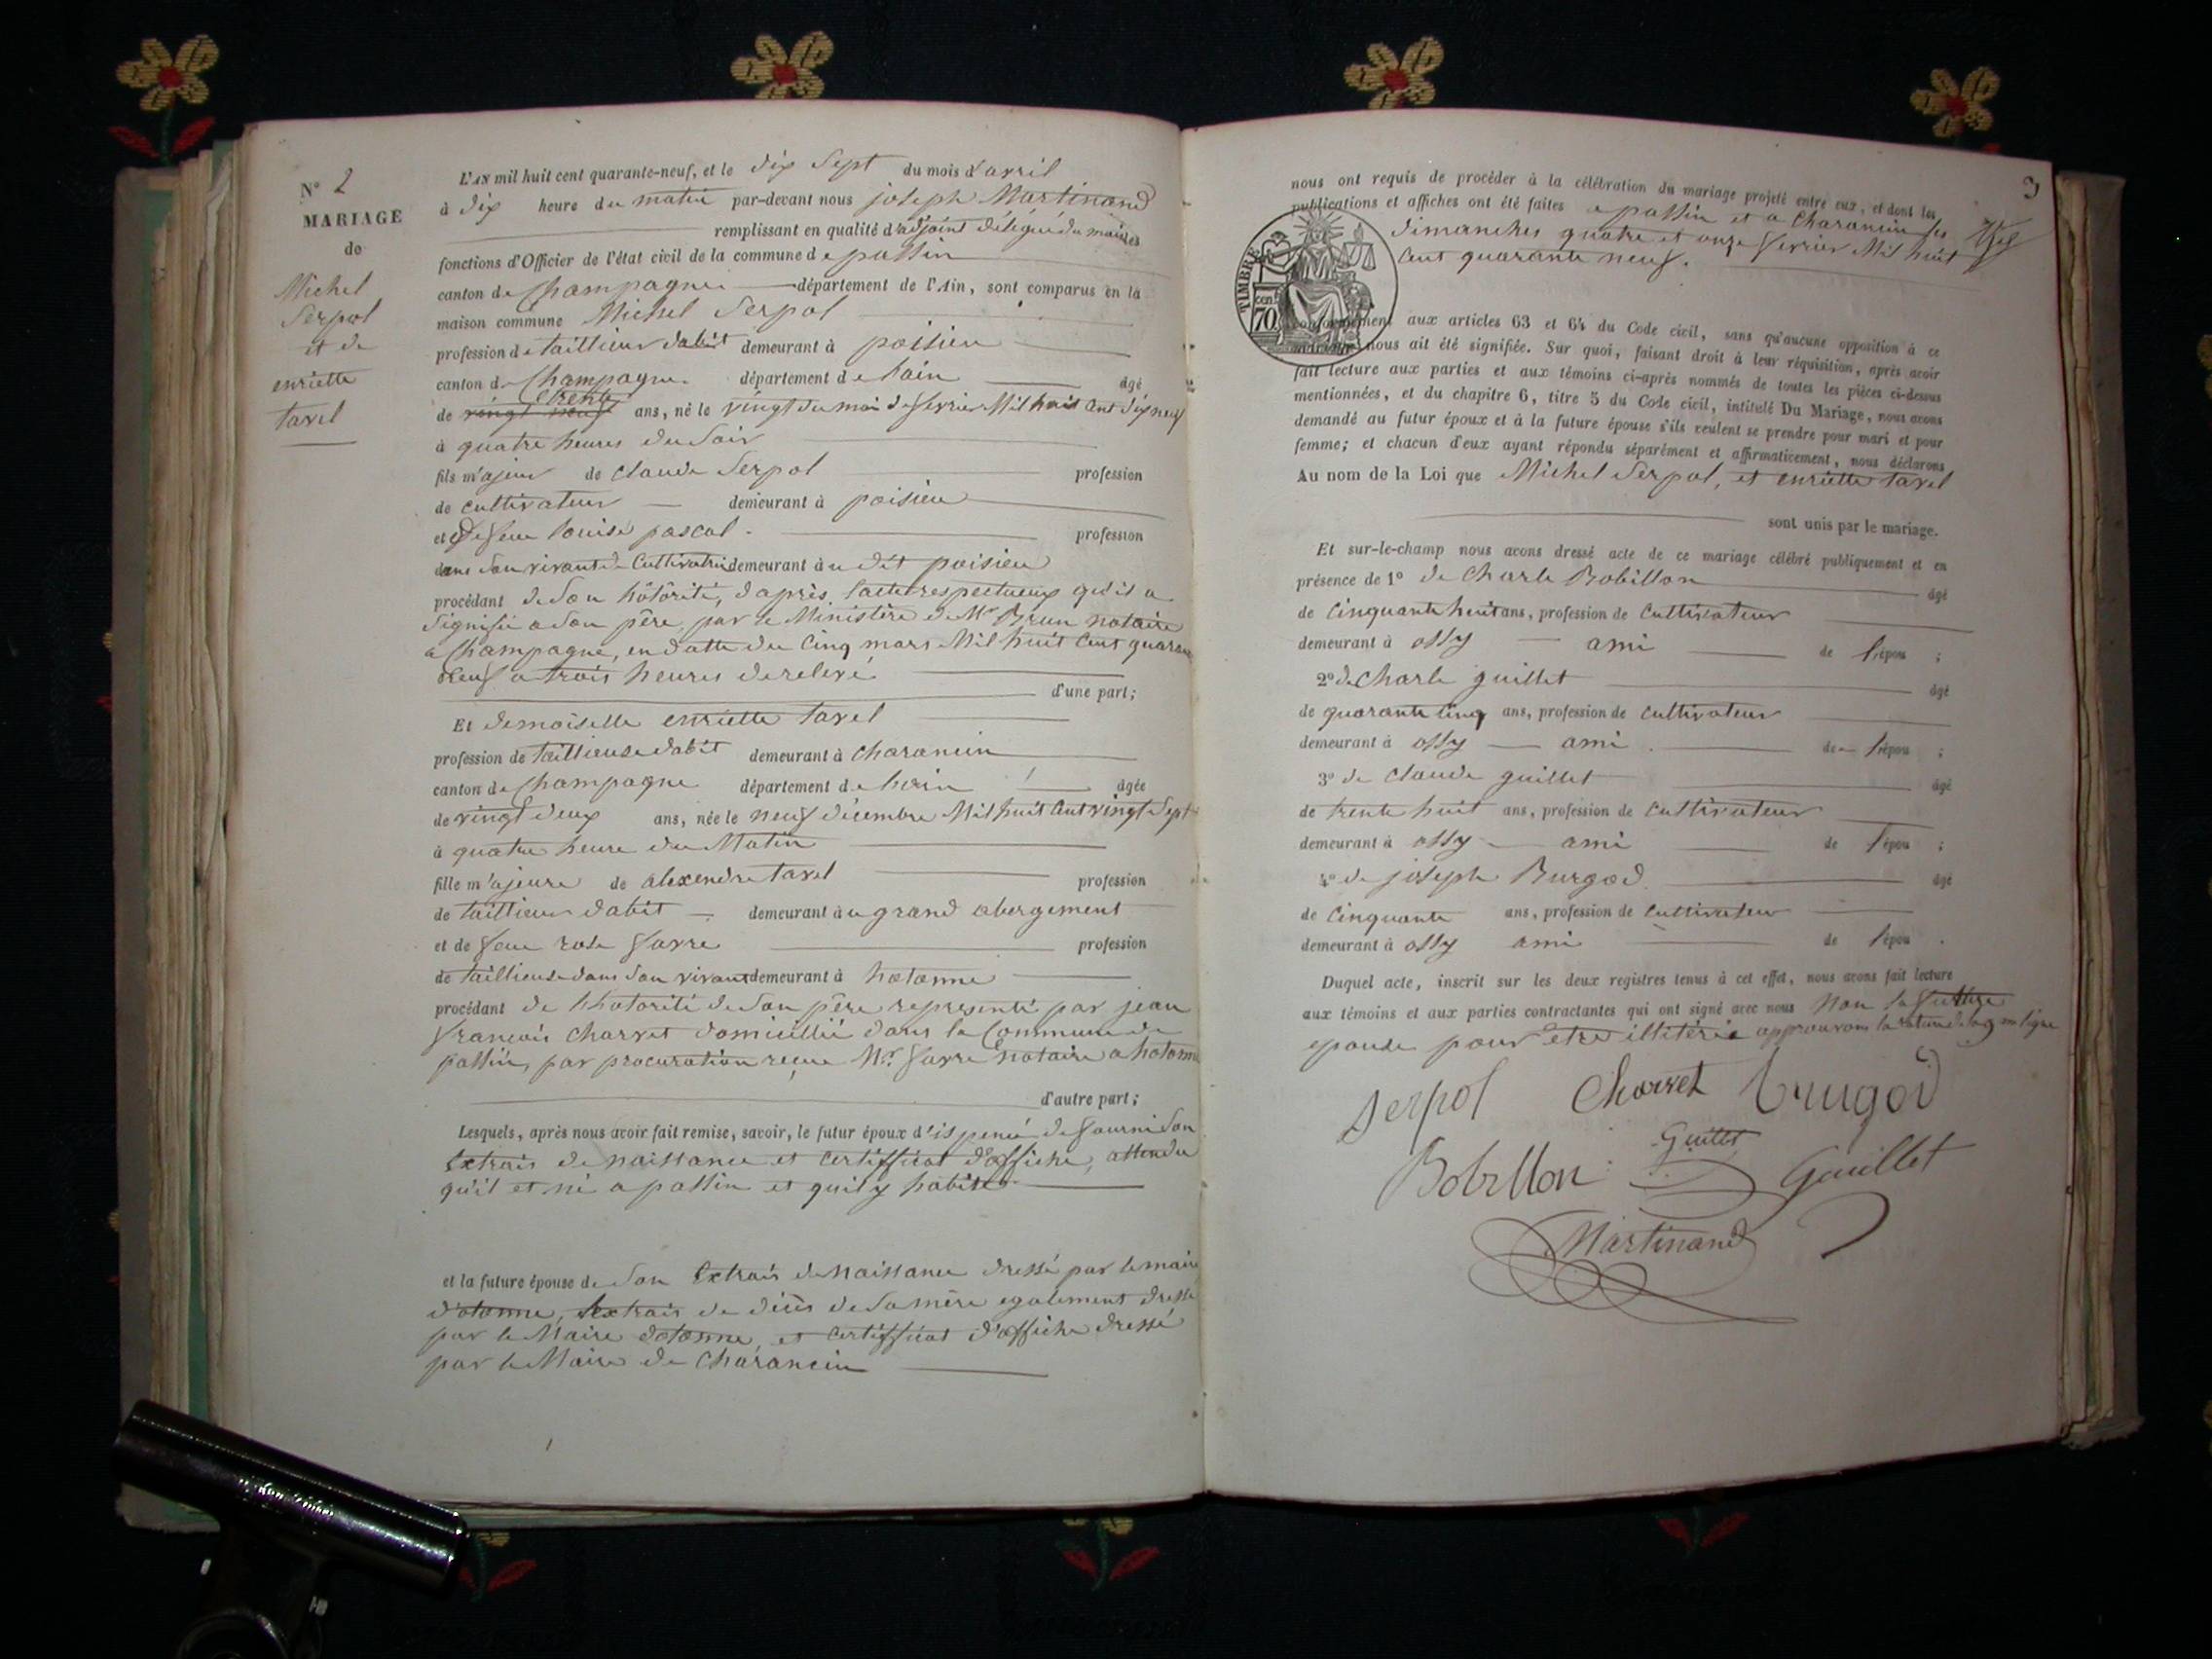 N° 2
MARIAGE
de
Michel
Serpol
et de
enriette
tavel
L'AN mil huit cent quarante-neuf, et le dix Sept du mois d'avril
à dix heure du matin par-devant nous joseph Martinand
remplissant en qualité d'adjoint délégué du maire les
fonctions d'Officier de l'état civil de la commune de passin
canton de Champagne département de l'Ain, sont comparus en la
maison commune Michel Serpol
profession de taillieur dabit demeurant à poisieu
canton de Champagne département de lain âgé
de vingt neuf trente ans, né le vingt du moi de fevrier Mil huit Cent dix neuf
à quatre heures du Soir
fils m'ajeur de Claude Serpol profession
de cultivateur demeurant à poisieu
et de feue louise pascal profession
dans Son vivant de Cultivatrice demeurant à u dit poisieu
procédant de Son hôtorité, d'après lacte respectueux qu'il a
Signifié a Son père, par le Ministère de Me Brun notaire
a Champagne, en datte du Cinq mars Mil huit Cent quarante
neuf a trois heures de relevé
d'une part;
Et demoiselle enriette tavel
profession de taillieuse dabit demeurant à charancin
canton de Champagne département de lain âgée
de vingt deux ans, née le neuf décembre Mil huit Cent vingt Sept
à quatre heure du Matin
fille m'ajeure de alexendre tavel profession
de taillieur dabit demeurant à u grand abergement
et de feue rose favre profession
de taillieuse dans Son vivant demeurant à hotonne
procédant de lhotorité de Son père representé par jean
françois Charvet domicillié dans la Commune de
passin, par procuration reçue Mr favre notaire a hotonne
d'autre part;
Lesquels, après nous avoir fait remise, savoir, le futur époux d'ispencé de fourni Son
Extrais de naissance et Certifficat d'affiche, attendu
qu'il et né a passin et quil y habite
et la future épouse de Son Extrais de naissance dressé par le maire
d'otonne, lextrais de décès de Sa mère egalement dressé
par le Maire dotonne, et Certifficat d'affiche dressé
par le Maire de Charancin
3
nous ont requis de procéder à la célébration du mariage projeté entre eux, et dont les
publications et affiches ont été faites a passin et a Charancin les
dimanches quatre et onze fevrier Mil huit
Cent quarante neuf.
TIMBRE
70
cent
conformément aux articles 63 et 64 du Code civil, sans qu'aucune opposition à ce
mariage nous ait été signifiée. Sur quoi, faisant droit à leur réquisition, après avoir
fait lecture aux parties et aux témoins ci-après nommés de toutes les pièces ci-dessus
mentionnées, et du chapitre 6, titre 5 du Code civil, intitulé Du Mariage, nous avons
demandé au futur époux et à la future épouse s'ils veulent se prendre pour mari et pour
femme; et chacun d'eux ayant répondu séparément et affirmativement, nous déclarons
Au nom de la Loi que Michel Serpol, et enriette tavel
sont unis par le mariage.
Et sur-le-champ nous avons dressé acte de ce mariage célébré publiquement et en
présence de 1° de Charle Bobillon âgé
de Cinquante huit ans, profession de Cultivateur
demeurant à ossy ami de l'épou ;
2° de Charle guillet âgé
de quarante Cinq ans, profession de Cultivateur
demeurant à ossy ami de l'épou ;
3° de Claude guillet âgé
de trente huit ans, profession de Cultivateur
demeurant à ossy ami de l'épou ;
4° de joseph Burgod âgé
de Cinquante ans, profession de Cultivateur
demeurant à ossy ami de l'épou .
Duquel acte, inscrit sur les deux registres tenus à cet effet, nous avons fait lecture
aux témoins et aux parties contractantes qui ont signé avec nous Non la future
epouse pour etre illitérée approuvons la rature de la 9me ligne
Serpol Charvet Burgod
Bobillon Guillet Guillet
Martinand